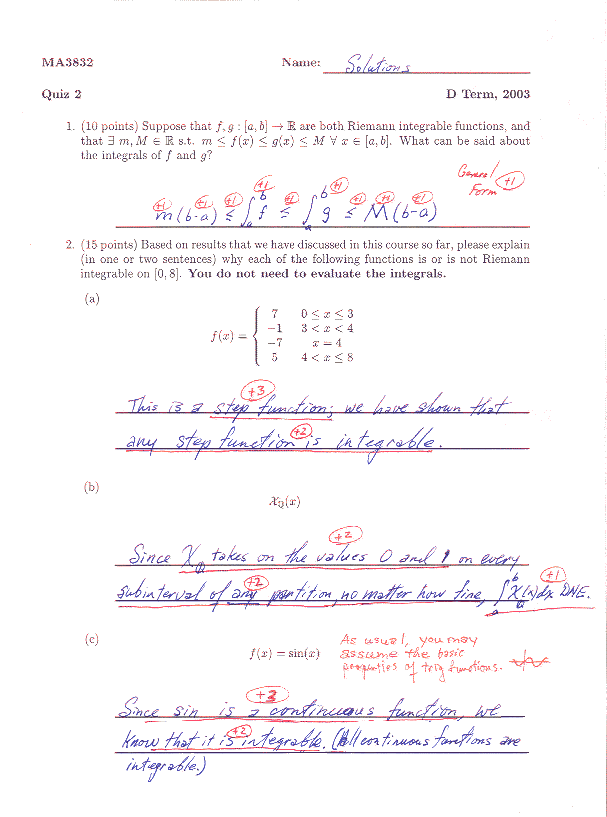 MA3832 Name: Solutions
Quiz 2 D Term, 2003
1. (10 points) Suppose that f, g : [a, b] → ℝ are both Riemann integrable functions, and
that ∃ m, M ∈ ℝ s.t. m ≤ f(x) ≤ g(x) ≤ M ∀ x ∈ [a, b]. What can be said about
the integrals of f and g?
General
Form +1
+1 +1 +1 +1 +1 +1 +1 +1 +1
m(b-a) ≤ ∫_a^b f ≤ ∫_a^b g ≤ M(b-a)
2. (15 points) Based on results that we have discussed in this course so far, please explain
(in one or two sentences) why each of the following functions is or is not Riemann
integrable on [0, 8]. You do not need to evaluate the integrals.
(a)
7 0 ≤ x ≤ 3
f(x) = { -1 3 < x < 4
-7 x = 4
5 4 < x ≤ 8
+3
This is a step function; we have shown that
+2
any step function is integrable.
(b)
𝒳_ℚ(x)
+2
Since χ_ℚ takes on the values 0 and 1 on every
+2 +1
subinterval of any partition, no matter how fine, ∫_a^b χ(x)dx DNE.
(c)
f(x) = sin(x)
As usual, you may
assume the basic
properties of trig functions.
+3
Since sin is a continuous function, we
+2
know that it is integrable. (All continuous functions are
integrable.)